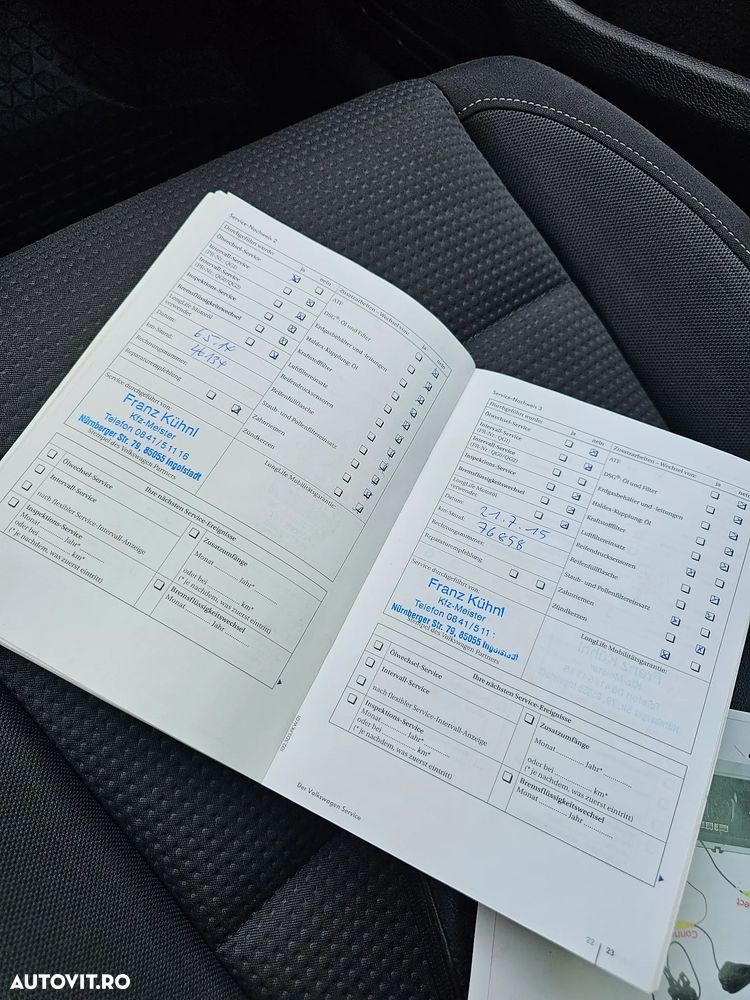 Service-Nachweis 2
Durchgeführt wurde:
ja
nein
Ölwechsel-Service
(PR-Nr.: QG1)
Intervall-Service
(PR-Nr.: QG0/QG2)
Inspektions-Service
Bremsflüssigkeitswechsel
LongLife Motoröl
verwendet
Datum:
6.5.14
km-Stand:
46134
Rechnungsnummer:
Reparaturempfehlung
Zusatzarbeiten – Wechsel von:
ja
nein
ATF
DSG®: Öl und Filter
Erdgasbehälter und -leitungen
Haldex-Kupplung Öl
Kraftstofffilter
Luftfiltereinsatz
Reifendrucksensoren
Reifenfüllflasche
Staub- und Pollenfiltereinsatz
Zahnriemen
Zündkerzen
LongLife Mobilitätsgarantie:
Service durchgeführt von:
Franz Kühnl
Kfz-Meister
Telefon 08 41/5 11 16
Nürnberger Str. 79, 85055 Ingolstadt
Stempel des Volkswagen Partners
Ihre nächsten Service-Ereignisse
Ölwechsel-Service
Intervall-Service
nach flexibler Service-Intervall-Anzeige
Inspektions-Service
Monat ............ Jahr* ............
oder bei ............ km*
(* je nachdem, was zuerst eintritt)
Zusatzumfänge
Monat ............ Jahr* ............
oder bei ............ km*
(* je nachdem, was zuerst eintritt)
Bremsflüssigkeitswechsel
Monat ............ Jahr ............
Service-Nachweis 3
Durchgeführt wurde:
ja
nein
Ölwechsel-Service
(PR-Nr.: QG1)
Intervall-Service
(PR-Nr.: QG0/QG2)
Inspektions-Service
Bremsflüssigkeitswechsel
LongLife Motoröl
verwendet
Datum:
21.7.15
km-Stand:
76858
Rechnungsnummer:
Reparaturempfehlung
Zusatzarbeiten – Wechsel von:
ja
nein
ATF
DSG®: Öl und Filter
Erdgasbehälter und -leitungen
Haldex-Kupplung Öl
Kraftstofffilter
Luftfiltereinsatz
Reifendrucksensoren
Reifenfüllflasche
Staub- und Pollenfiltereinsatz
Zahnriemen
Zündkerzen
LongLife Mobilitätsgarantie:
Service durchgeführt von:
Franz Kühnl
Kfz-Meister
Telefon 08 41/5 11
Nürnberger Str. 79, 85055 Ingolstadt
Stempel des Volkswagen Partners
Ihre nächsten Service-Ereignisse
Ölwechsel-Service
Intervall-Service
nach flexibler Service-Intervall-Anzeige
Inspektions-Service
Monat ............ Jahr* ............
oder bei ............ km*
(* je nachdem, was zuerst eintritt)
Zusatzumfänge
Monat ............ Jahr* ............
oder bei ............ km*
(* je nachdem, was zuerst eintritt)
Bremsflüssigkeitswechsel
Monat ............ Jahr ............
Der Volkswagen Service
22 | 23
AUTOVIT.RO